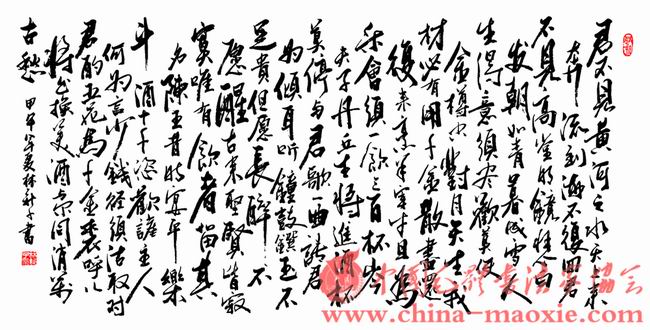 君不見黃河之水天上來
奔流到海不復回君
不見高堂明鏡悲白
发朝如青絲暮成雪人
生得意須盡歡莫使
金樽空對月天生我
材必有用千金散盡還
復來烹羊宰牛且為
樂會須一飲三百杯岑
夫子丹丘生將進酒杯
莫停與君歌一曲請君
為傾耳聽鐘鼓饌玉不
足貴但愿長醉不
愿醒古來聖賢皆寂
寞唯有飲者留其
名陳王昔時宴平樂
斗酒十千恣歡謔主人
何為言少錢徑須沽取對
君酌五花馬千金裘呼儿
將出換美酒與尔同消萬
古愁 甲午年夏林 書
中國毛體書法家協會
www.china-maoxie.com